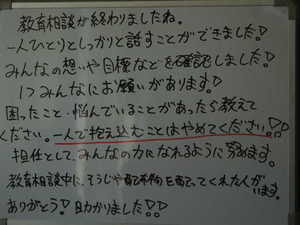 教育相談が終わりましたね。
一人ひとりとしっかりと話すことができました!
みんなの想いや目標などを確認しました!
1つみんなにお願いがあります!
困ったこと・悩んでいることがあったら教えて
ください。一人で抱え込むことはやめてください!!
担任として、みんなの力になれるように努めます。
教育相談中に、そうじや配布物を配ってくれた人がいます。
ありがとう! 助かりました!!